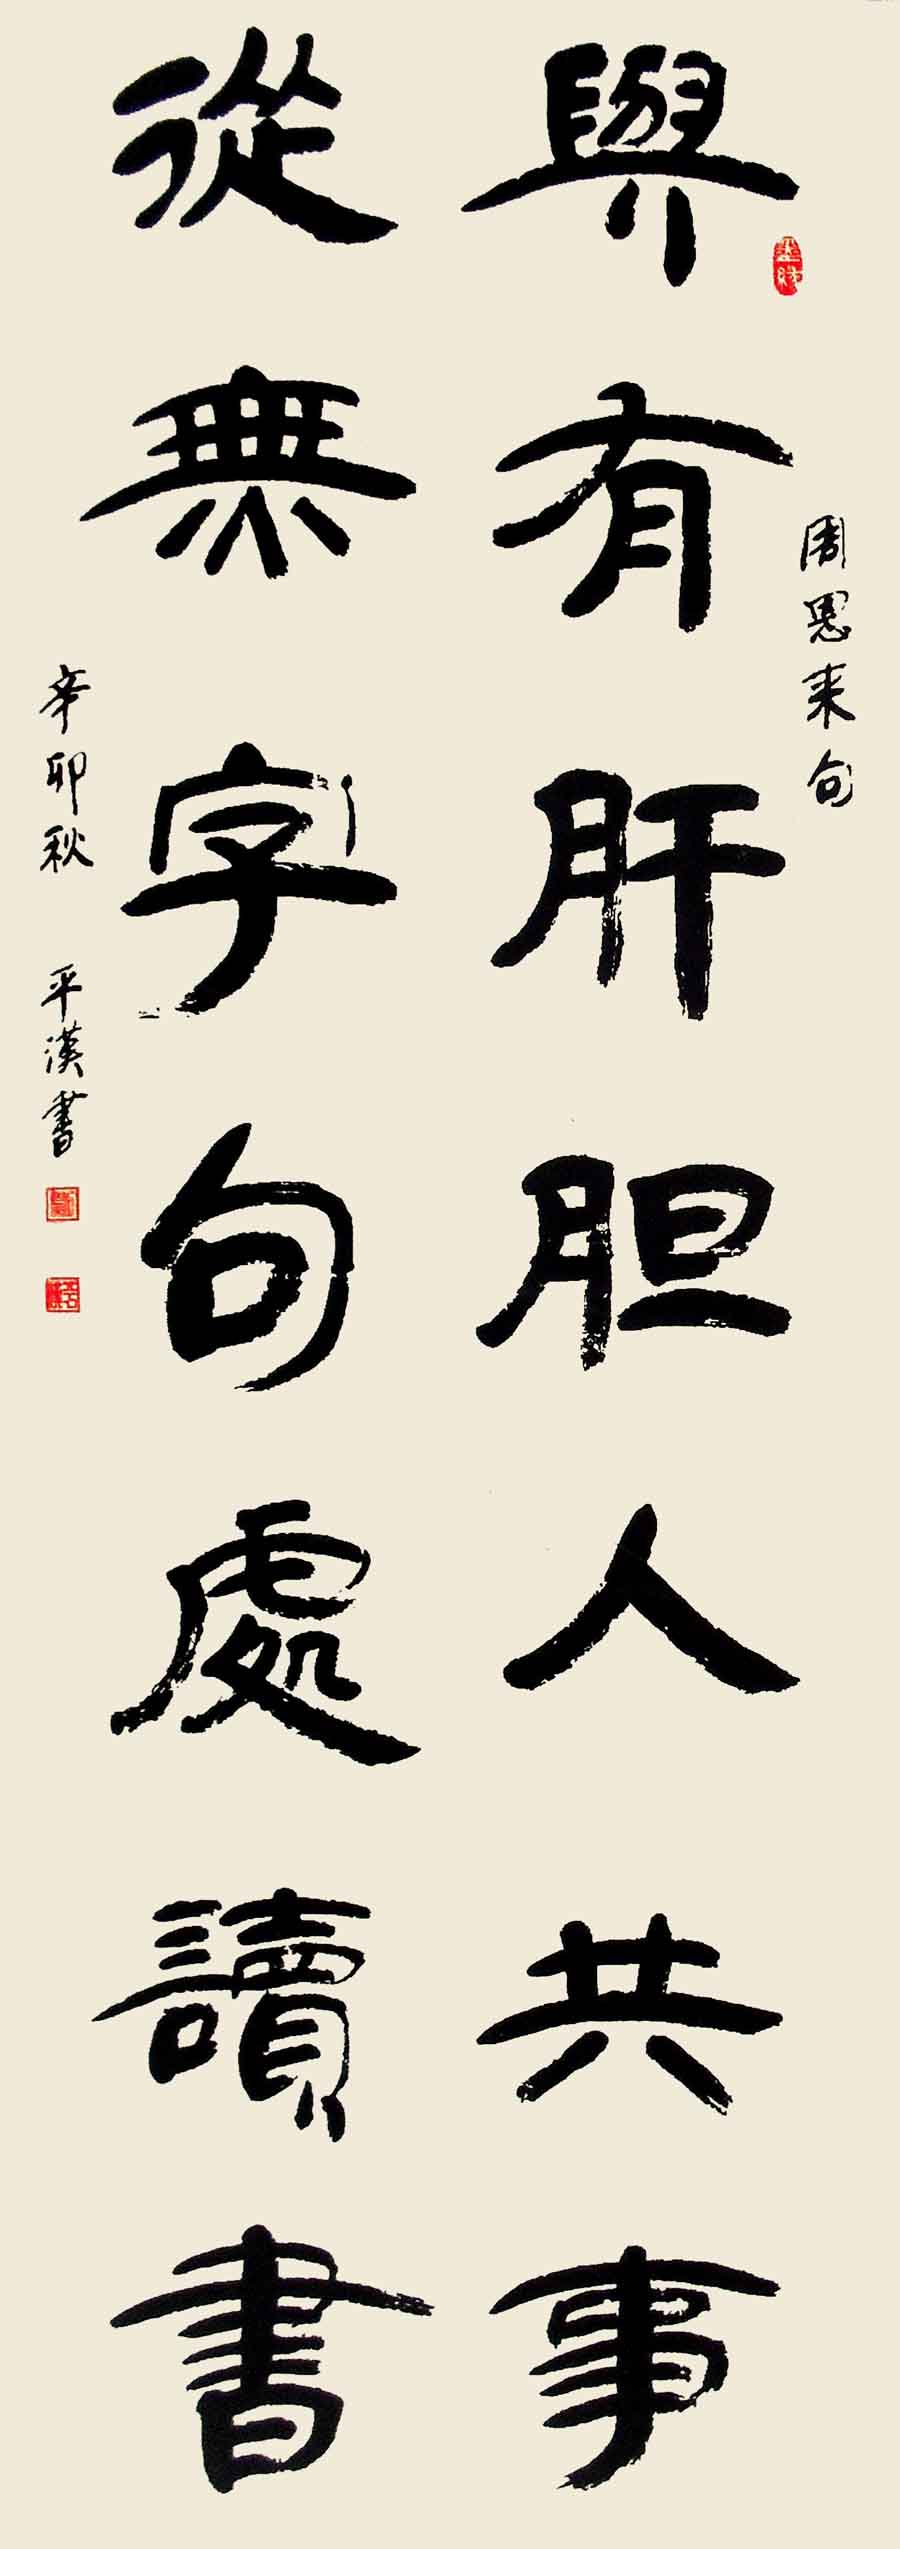 與有肝胆人共事
從無字句處讀書
周恩来句
辛卯秋 平漢書